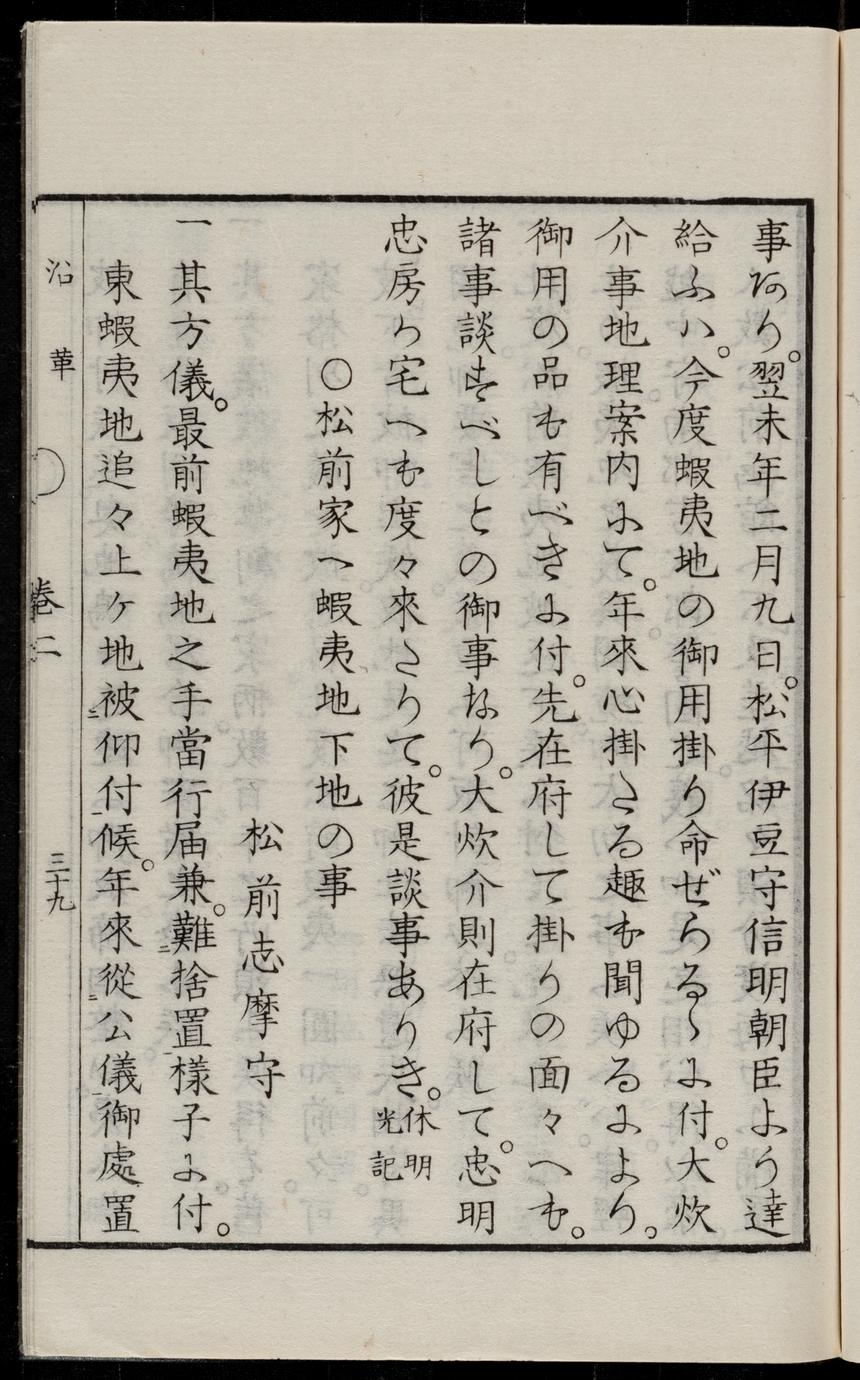 事あり。翌未年二月九日。松平伊豆守信明朝臣より達
給ふハ。今度蝦夷地の御用掛り命ぜらるゝよ付。大炊
介事地理案内よて。年來心掛さる趣も聞ゆるより。
御用の品も有べきよ付。先在府して掛りの面々へも。
諸事談ずべしとの御事なり。大炊介則在府して。忠明
忠房か宅へも度々來さりて。彼是談事ありき。休明光記
○松前家へ蝦夷地下地の事
松前志摩守
一其方儀。最前蝦夷地之手當行届兼。難ニ捨置一樣子よ付。
東蝦夷地追々上ヶ地被ニ仰付一候。年來從ニ公儀一御處置
沿革 ○ 卷二 三十九